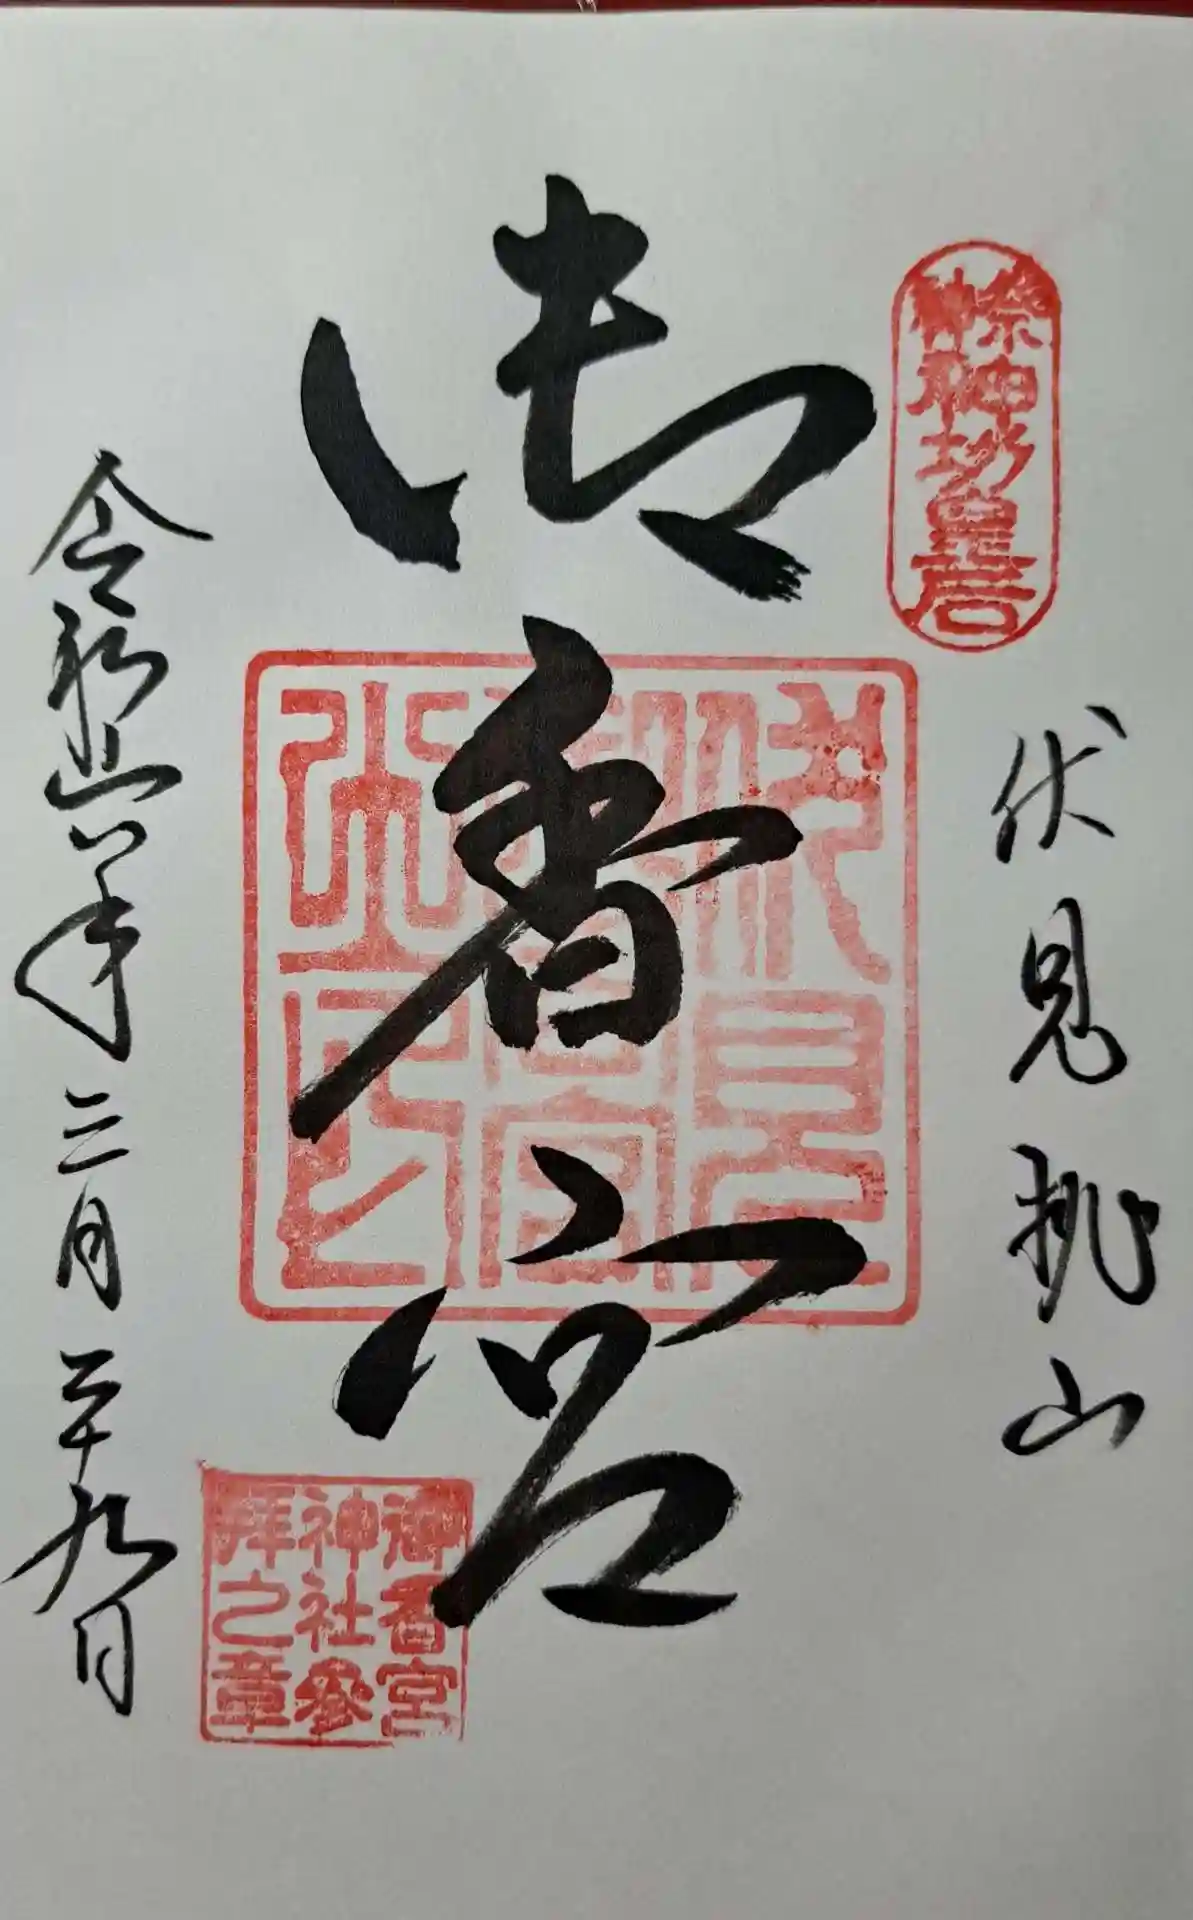 祭神
神功皇后
伏見桃山
御香宮
伏見
御香宮
御香宮
神社參
拜之章
令和六年三月二十九日